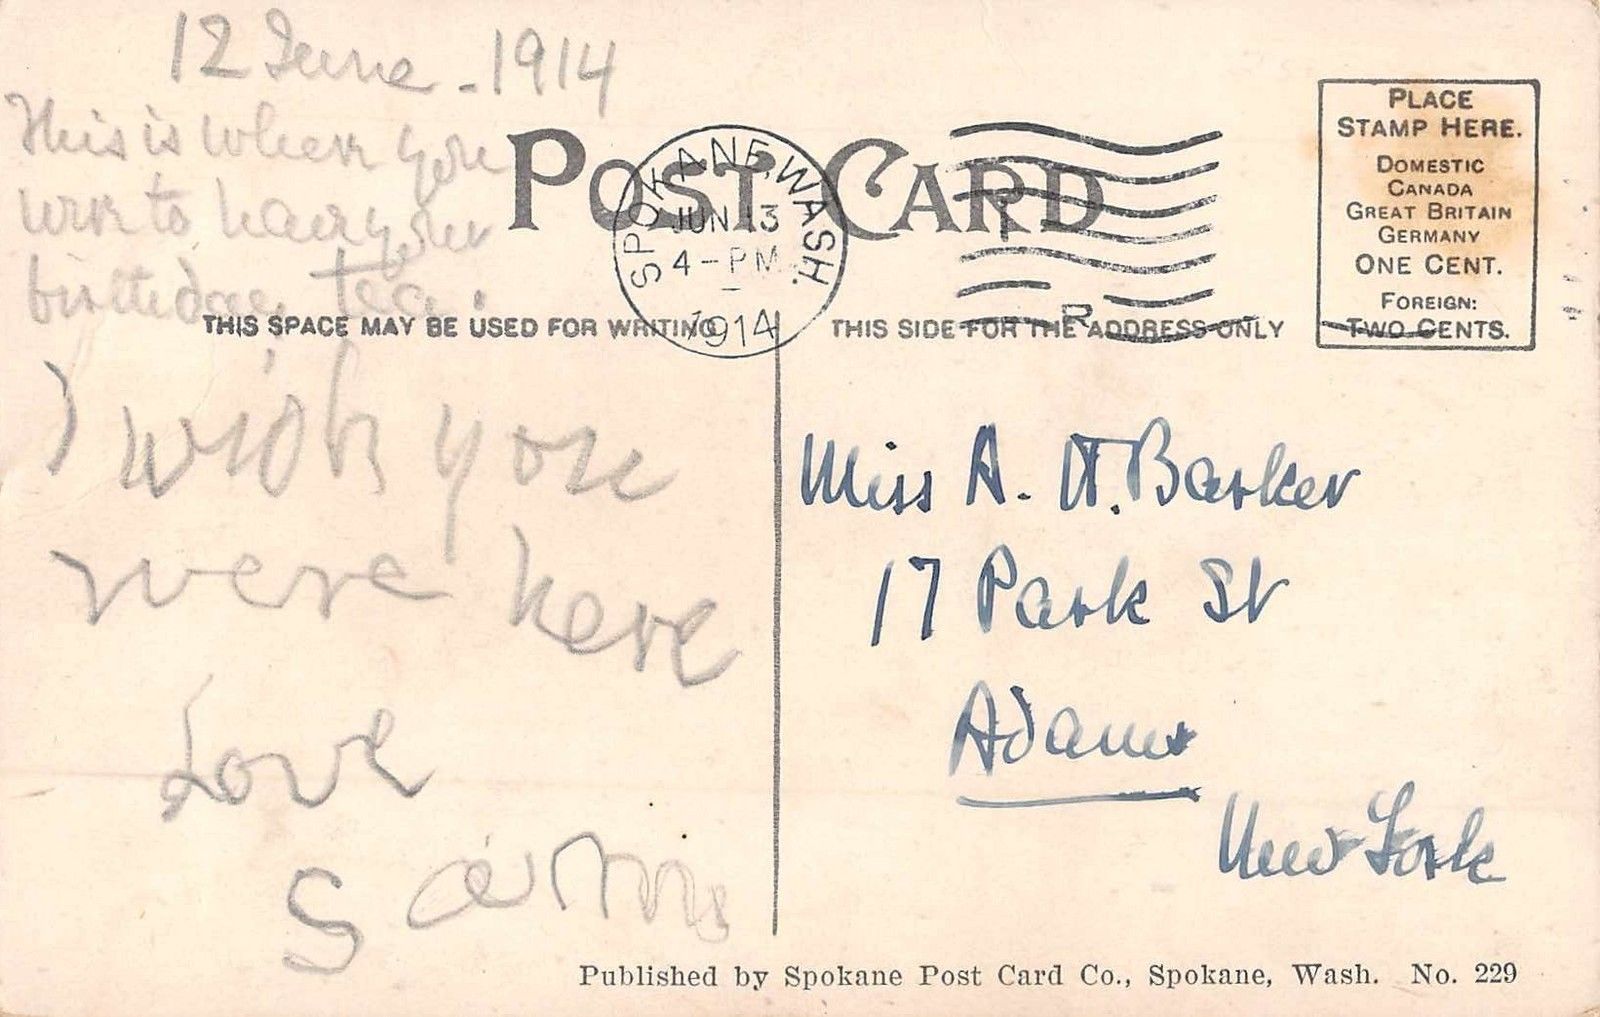 12 June - 1914
This is where you
were to have your
birthday tea.
I wish you
were here
Love
POST CARD
SPOKANE, WASH.
JUN 13
4 - PM
1914
R
PLACE
STAMP HERE.
DOMESTIC
CANADA
GREAT BRITAIN
GERMANY
ONE CENT.
FOREIGN:
TWO CENTS.
THIS SPACE MAY BE USED FOR WRITING
THIS SIDE FOR THE ADDRESS ONLY
Miss A. H. Barker
17 Park St
Adams
New York
Published by Spokane Post Card Co., Spokane, Wash. No. 229